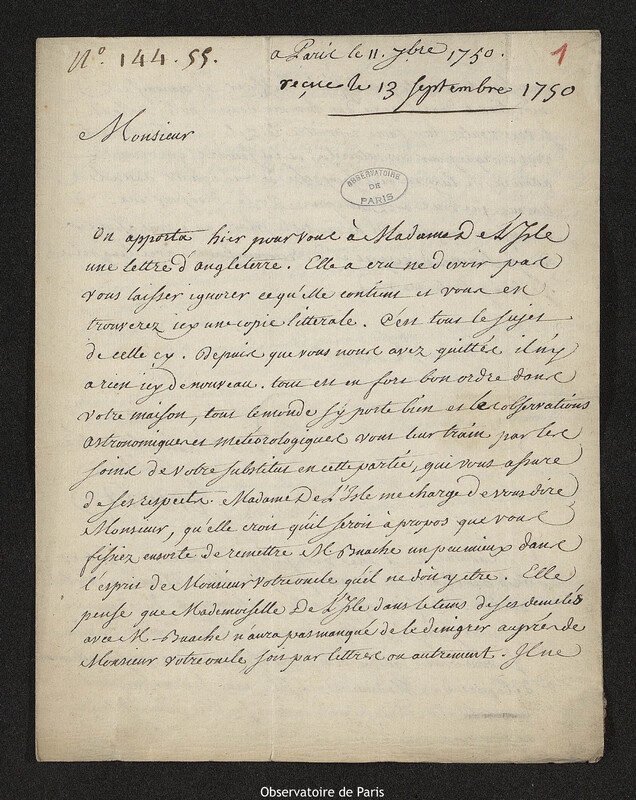 N.º 144.55.
a Paris le 11. 7bre 1750.
1
reçue le 13 Septembre 1750
Monsieur
OBSERVATOIRE
DE
PARIS
On apporta hier pour vous à Madame De L'Isle
une lettre d'angleterre. Elle a cru ne devoir pas
vous laisser ignorer ce qu'elle contient et vous en
trouverez icy une copie litterale. C'est tout le sujet
de celle cy. Depuis que vous nous avez quittés il n'y
a rien icy de nouveau. tout est en fort bon ordre dans
votre maison, tout le monde s'y porte bien et les observations
astronomiques et météorologiques vont leur train par les
soins de votre substitut en cette partie, qui vous assure
de ses respects. Madame De L'Isle me charge de vous dire
Monsieur, qu'elle croit qu'il seroit à propos que vous
fissiez ensorte de remettre M. Buache un peu mieux dans
l'esprit de Monsieur votre oncle qu'il ne doit y etre. Elle
pense que Mademoiselle De L'Isle dans le tems de ses demelés
avec M. Buache n'aura pas manqué de le denigrer auprès de
Monsieur votre oncle soit par lettres ou autrement. Il ne
Observatoire de Paris